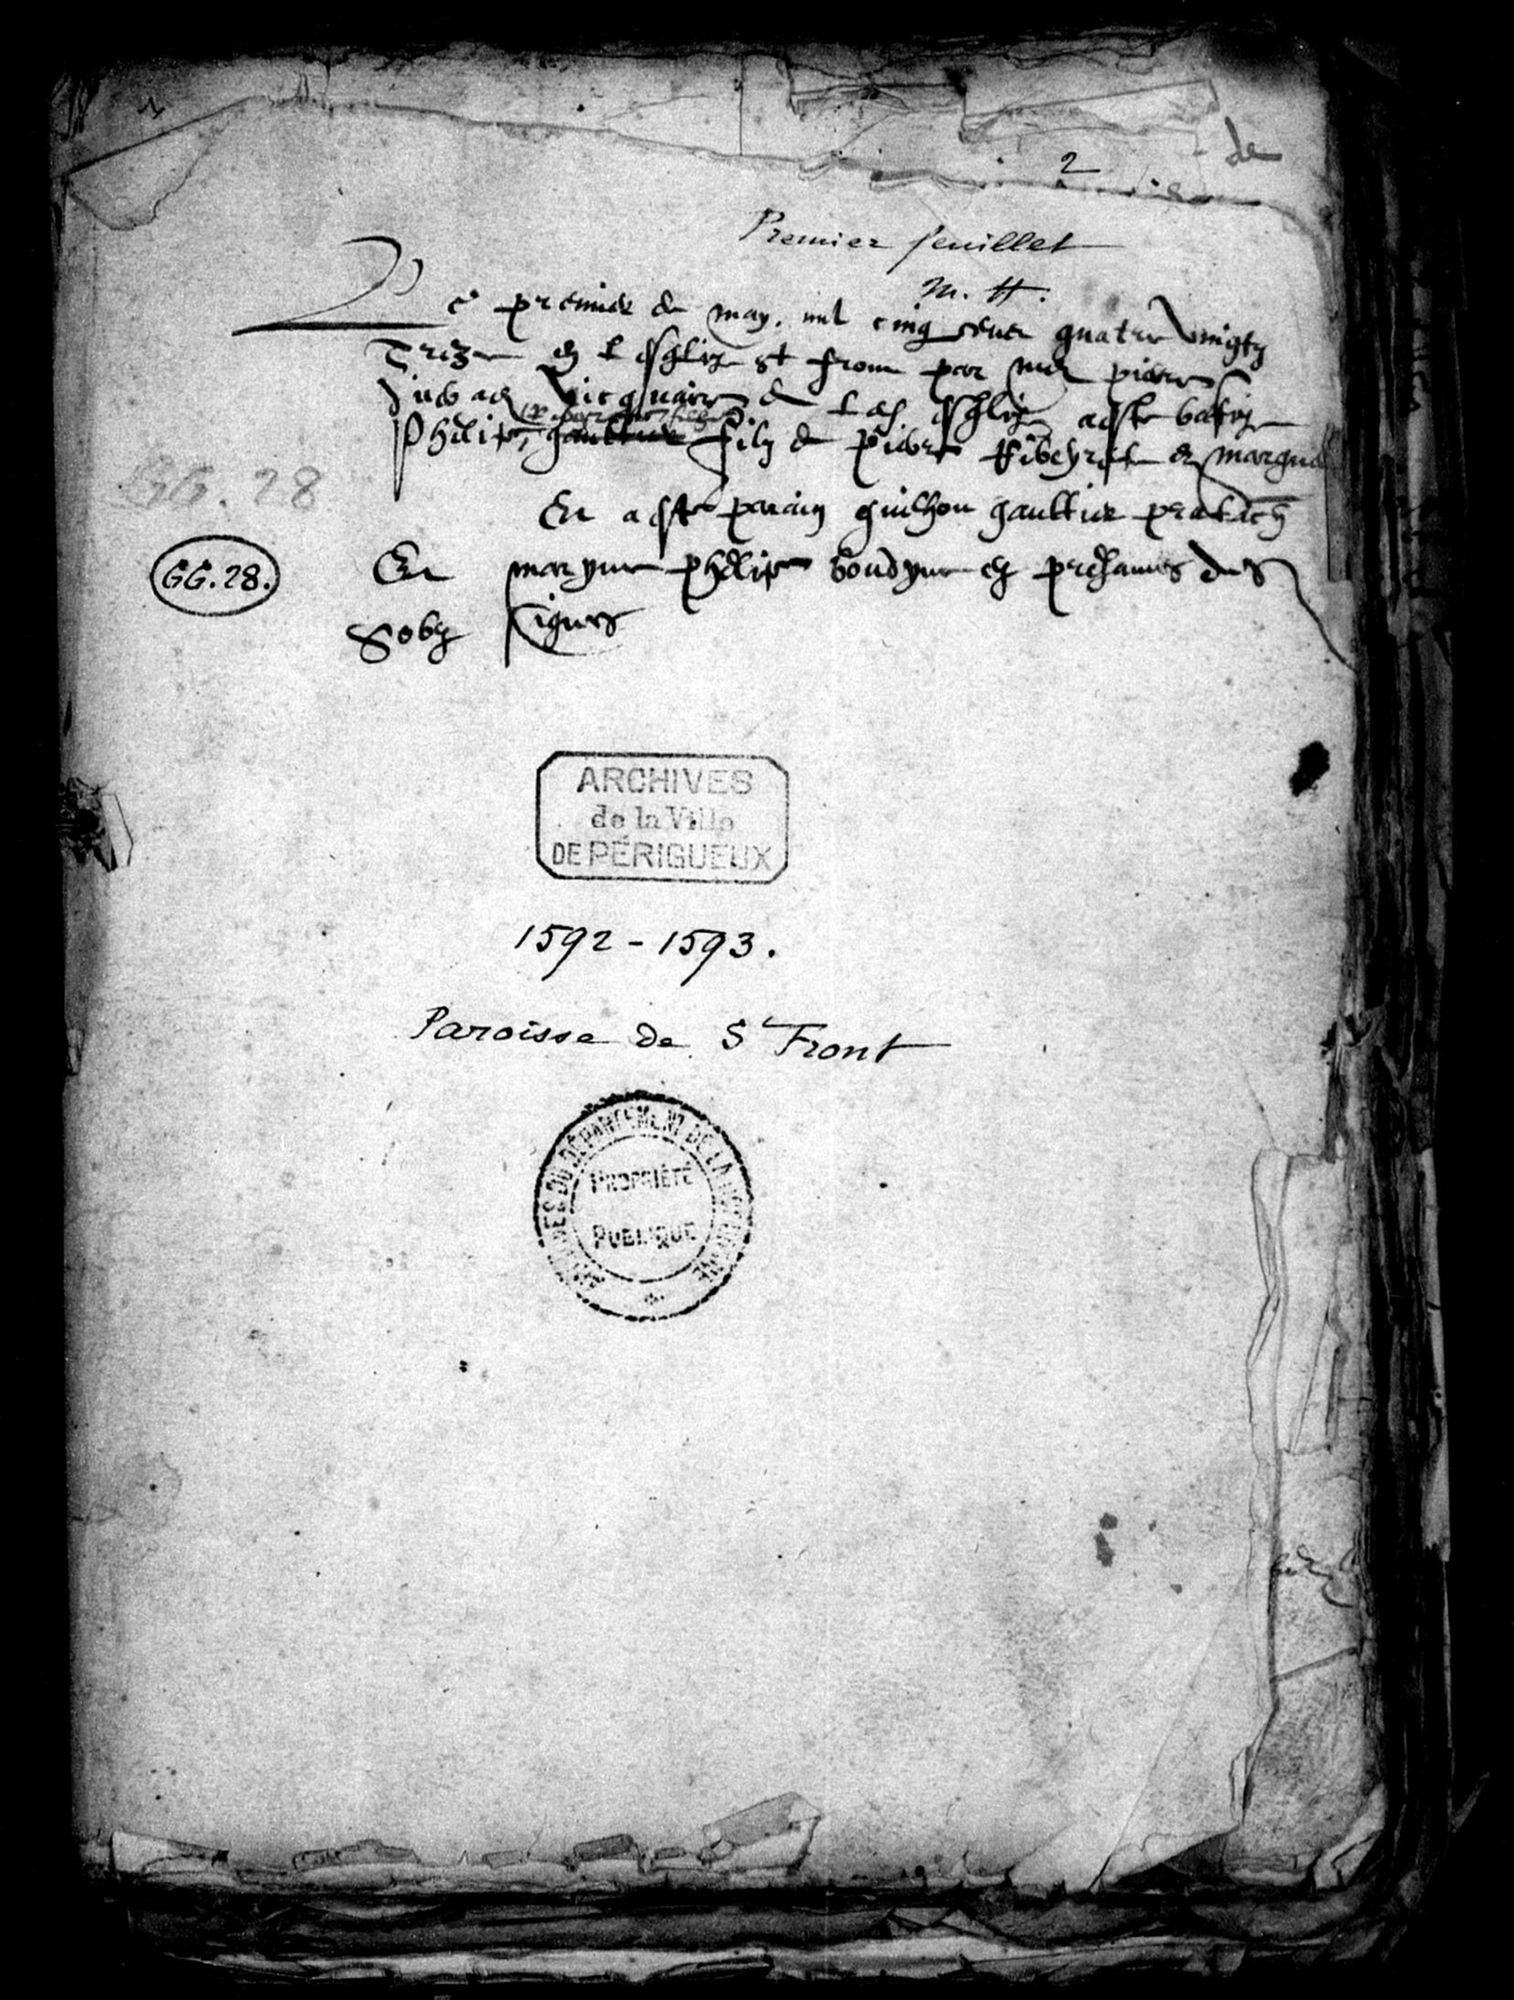 de
2
Premier feuillet
M. H.
Le premier de may mil cinq cens quatre vingtz
Treze en l esglize st front par moy pierre
vicquaire de lad esglize a este batize
Phelip filz de Pierre Ribeyret et margue
Et a este parain guilhou gaultier
Et maryne phelipe boudyne es presances des
Soubz signes
GG. 28
GG. 28.
ARCHIVES
de la Ville
DE PÉRIGUEUX
1592 - 1593.
Paroisse de St Front
ARCHIVES DU DÉPARTEMENT DE LA DORDOGNE
PROPRIÉTÉ
PUBLIQUE